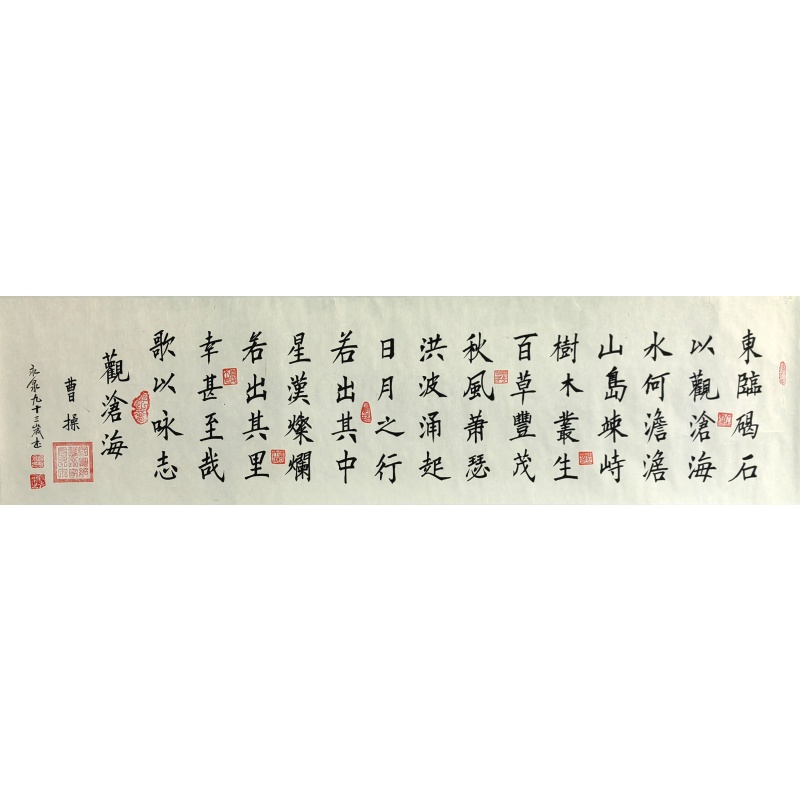 東臨碣石
以觀滄海
水何澹澹
山島竦峙
樹木叢生
百草豐茂
秋風蕭瑟
洪波涌起
日月之行
若出其中
星漢燦爛
若出其里
幸甚至哉
歌以咏志
觀滄海
曹操
九十三歲書